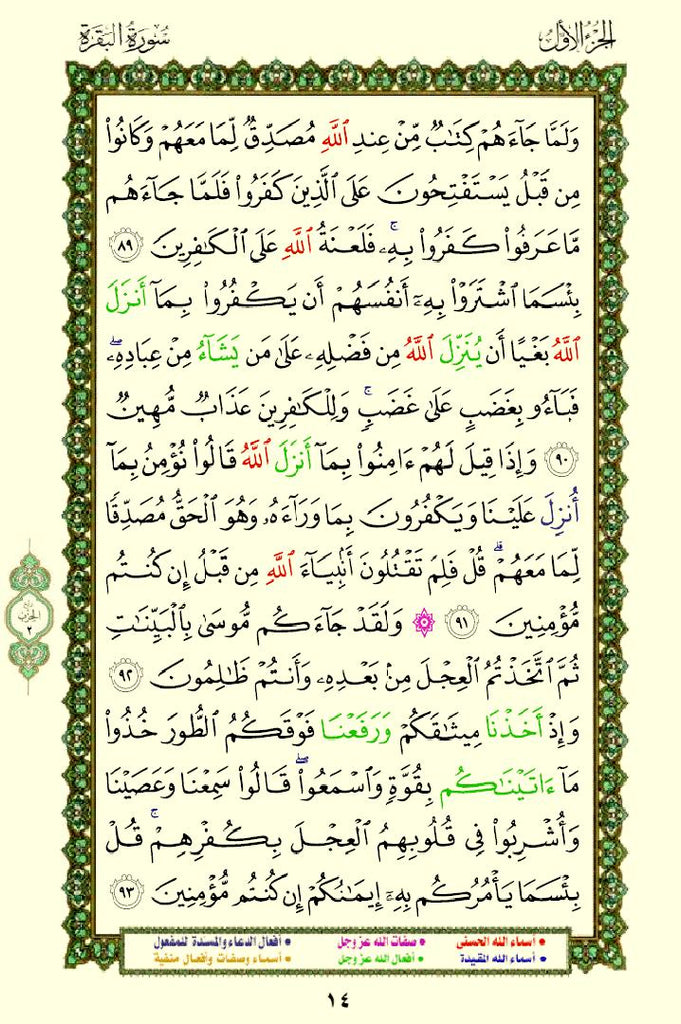 الجزء الأول
سورة البقرة
وَلَمَّا جَآءَهُمْ كِتَٰبٌ مِّنْ عِندِ ٱللَّهِ مُصَدِّقٌ لِّمَا مَعَهُمْ وَكَانُوا۟
مِن قَبْلُ يَسْتَفْتِحُونَ عَلَى ٱلَّذِينَ كَفَرُوا۟ فَلَمَّا جَآءَهُم
مَّا عَرَفُوا۟ كَفَرُوا۟ بِهِۦ ۚ فَلَعْنَةُ ٱللَّهِ عَلَى ٱلْكَٰفِرِينَ ٨٩
بِئْسَمَا ٱشْتَرَوْا۟ بِهِۦٓ أَنفُسَهُمْ أَن يَكْفُرُوا۟ بِمَآ أَنزَلَ
ٱللَّهُ بَغْيًا أَن يُنَزِّلَ ٱللَّهُ مِن فَضْلِهِۦ عَلَىٰ مَن يَشَآءُ مِنْ عِبَادِهِۦ ۖ
فَبَآءُو بِغَضَبٍ عَلَىٰ غَضَبٍ ۚ وَلِلْكَٰفِرِينَ عَذَابٌ مُّهِينٌ
٩٠ وَإِذَا قِيلَ لَهُمْ ءَامِنُوا۟ بِمَآ أَنزَلَ ٱللَّهُ قَالُوا۟ نُؤْمِنُ بِمَآ
أُنزِلَ عَلَيْنَا وَيَكْفُرُونَ بِمَا وَرَآءَهُۥ وَهُوَ ٱلْحَقُّ مُصَدِّقًا
لِّمَا مَعَهُمْ ۗ قُلْ فَلِمَ تَقْتُلُونَ أَنۢبِيَآءَ ٱللَّهِ مِن قَبْلُ إِن كُنتُم
مُّؤْمِنِينَ ٩١ ۞ وَلَقَدْ جَآءَكُم مُّوسَىٰ بِٱلْبَيِّنَٰتِ
ثُمَّ ٱتَّخَذْتُمُ ٱلْعِجْلَ مِنۢ بَعْدِهِۦ وَأَنتُمْ ظَٰلِمُونَ ٩٢
وَإِذْ أَخَذْنَا مِيثَٰقَكُمْ وَرَفَعْنَا فَوْقَكُمُ ٱلطُّورَ خُذُوا۟
مَآ ءَاتَيْنَٰكُم بِقُوَّةٍ وَٱسْمَعُوا۟ ۖ قَالُوا۟ سَمِعْنَا وَعَصَيْنَا
وَأُشْرِبُوا۟ فِى قُلُوبِهِمُ ٱلْعِجْلَ بِكُفْرِهِمْ ۚ قُلْ
بِئْسَمَا يَأْمُرُكُم بِهِۦٓ إِيمَٰنُكُمْ إِن كُنتُم مُّؤْمِنِينَ ٩٣
ربع
الحزب
٢
• اسماء الله الحسنى • صفات الله عز وجل • أفعال الدعاء والمسندة للمفعول
• أسماء الله المقيدة • أفعال الله عز وجل • أسماء وصفات وأفعال منفية
١٤